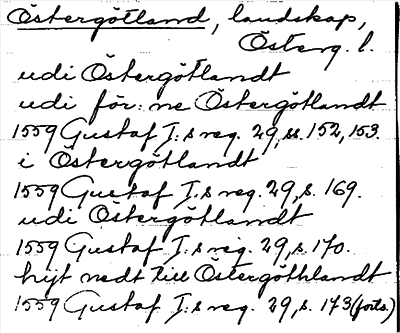 Östergötland, landskap,
Österg. l.
udi Östergötlandt
udi för:ne Östergötlandt
1559 Gustaf I:s reg. 29, ss. 152, 153.
i Östergötlandt
1559 Gustaf I:s reg. 29, s. 169.
udi Östergöthlandt
1559 Gustaf I:s reg. 29, s. 170.
hijt nedt till Östergöthlandt
1559 Gustaf I:s reg. 29, s. 173 (forts.)